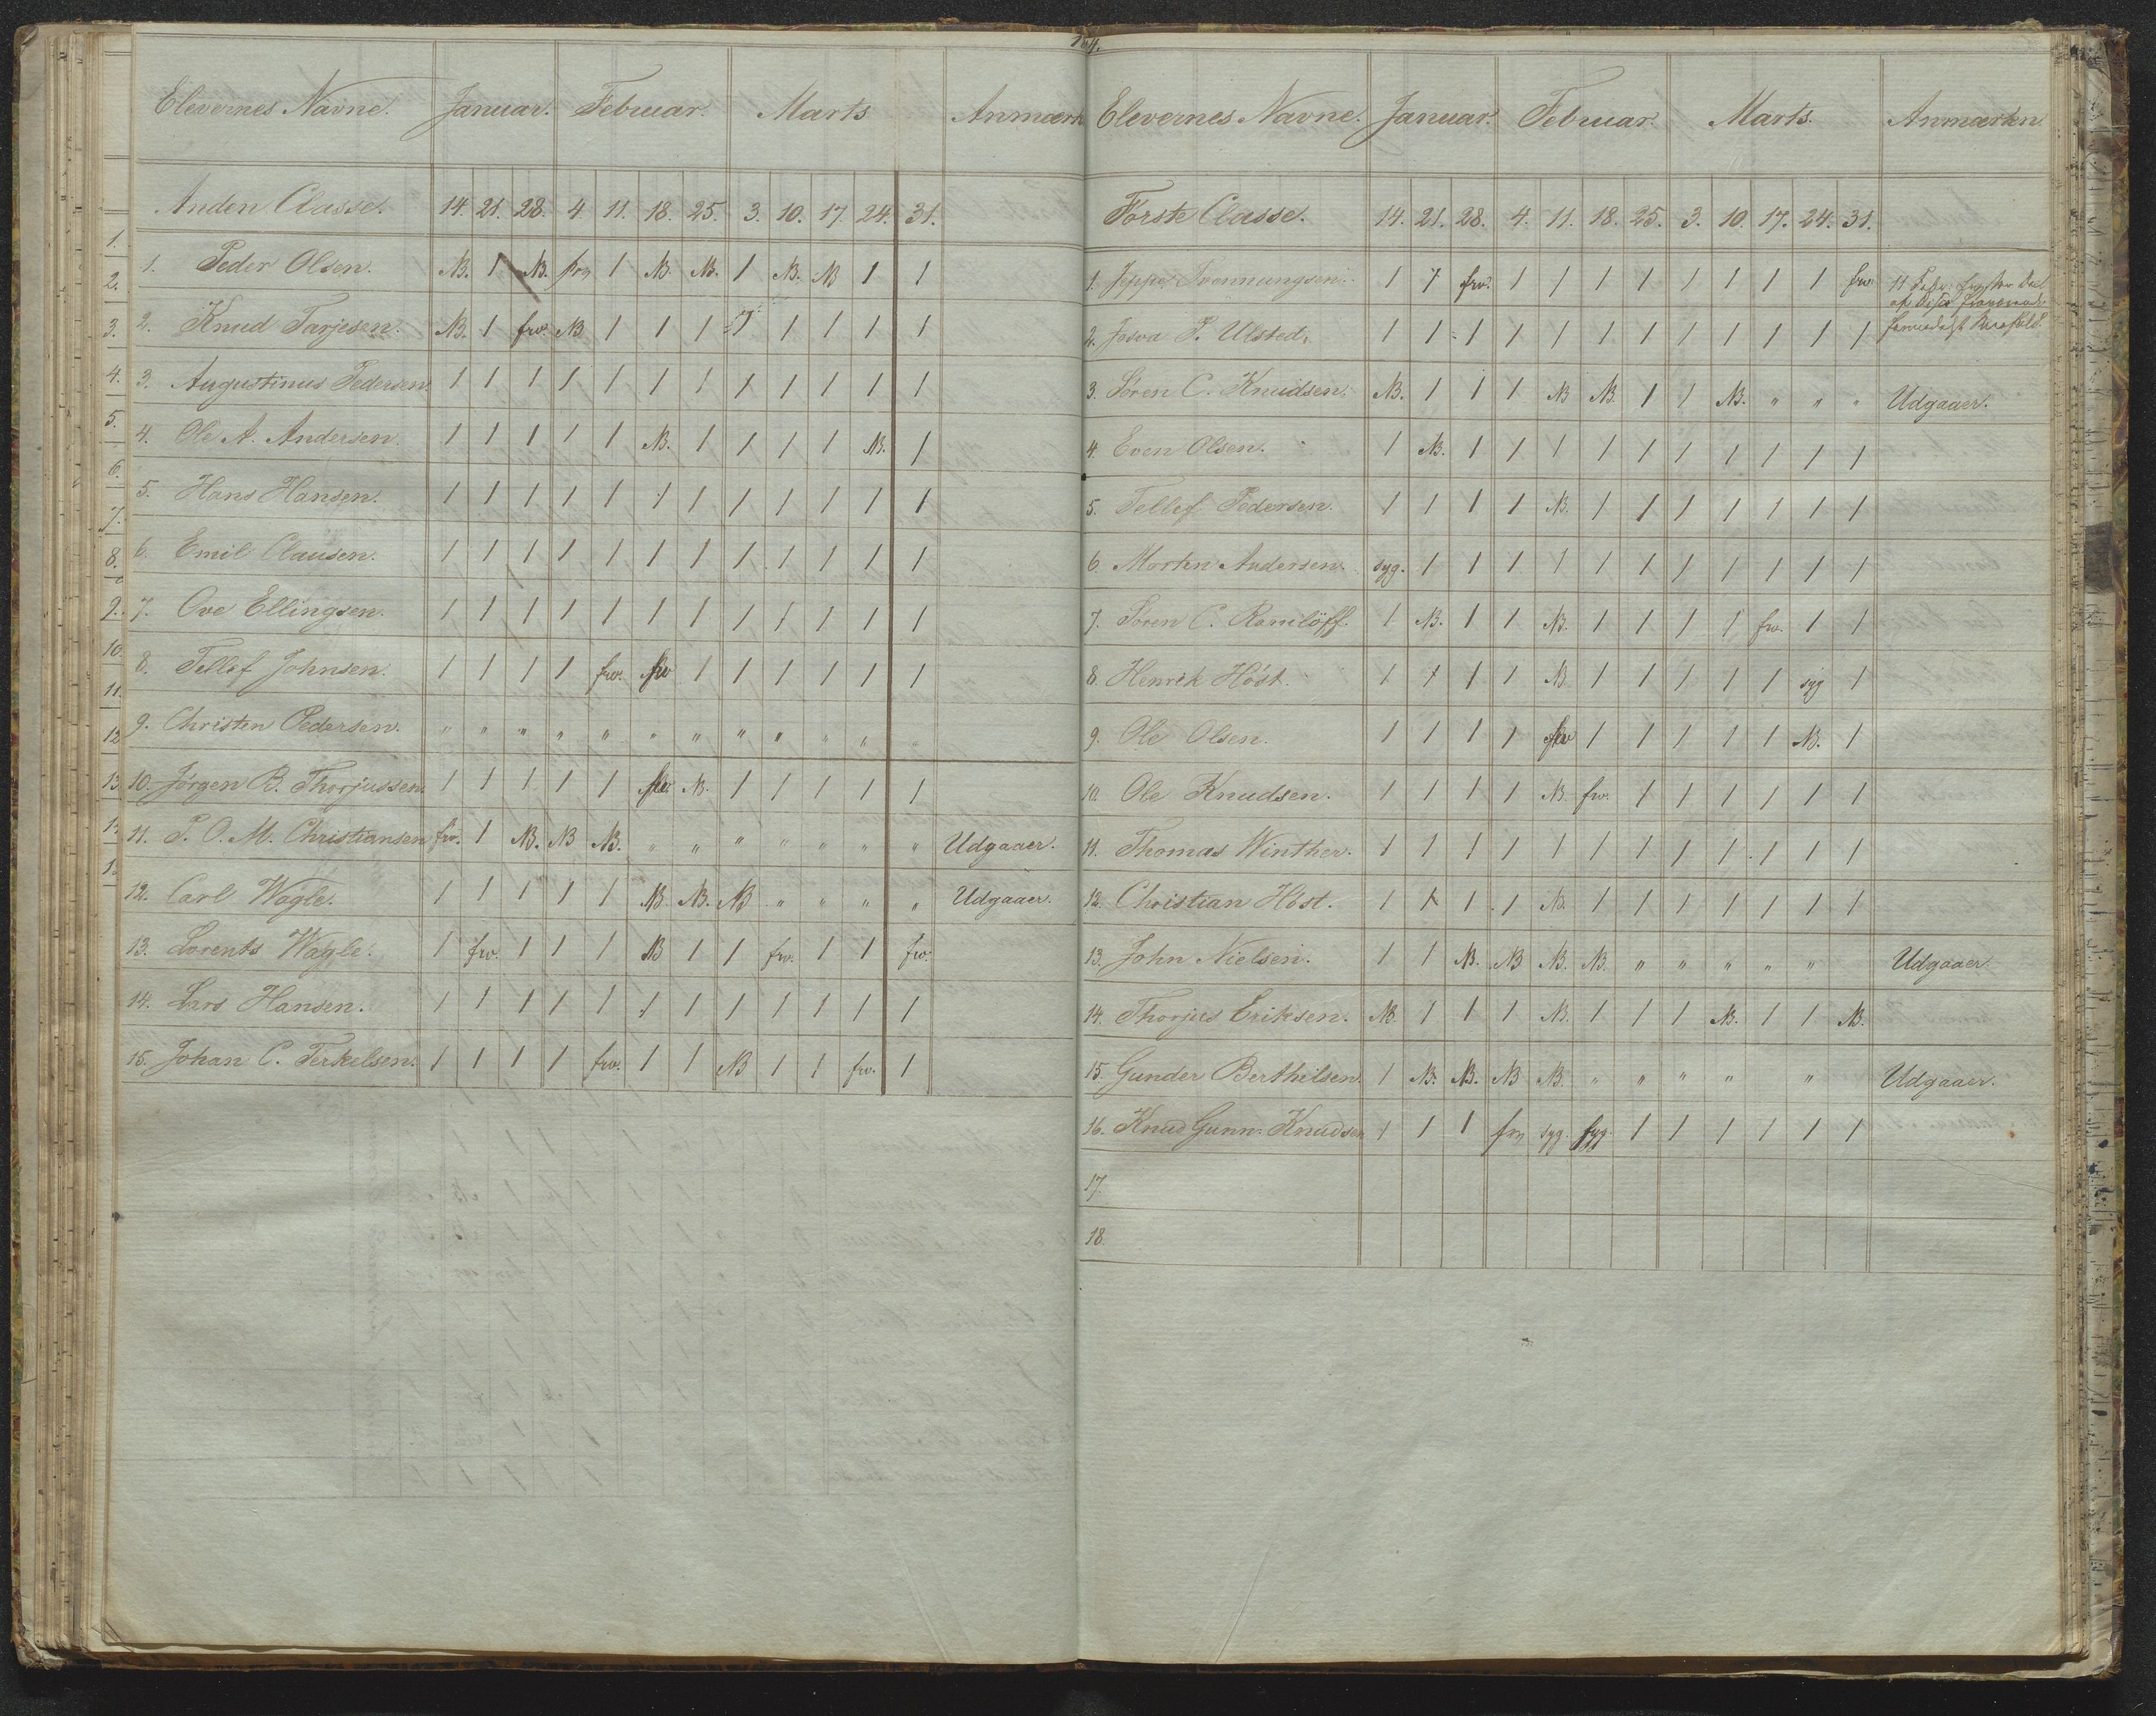 164.
Elevernes Navne. Januar. Februar. Marts Anmærk
Anden Classe. 14. 21. 28. 4 11. 18. 25. 3. 10. 17. 24. 31.
1. Peder Olsen. NB. 1 NB. frv 1 NB. NB. 1 NB. NB 1 1
2. Knud Tarjesen. NB. 1 frv. NB 1 1 1 1 1 1 1 1
3. Augustinus Pedersen 1 1 1 1 1 1 1 1 1 1 1 1
4. Ole A. Andersen 1 1 1 1 1 NB. 1 1 1 1 NB. 1
5. Hans Hansen. 1 1 1 1 1 1 1 1 1 1 1 1
6. Emil Clausen. 1 1 1 1 1 1 1 1 1 1 1 1
7. Ove Ellingsen. 1 1 1 1 1 1 1 1 1 1 1 1
8. Tellef Johnsen. 1 1 1 1 frv. frv 1 1 1 1 1 1
9. Christen Pedersen. " " " " " " " " " " " "
10. Jörgen B. Thorjussen 1 1 1 1 1 frv. NB. 1 1 1 1 1
11. P. O. M. Christiansen frv. 1 NB. NB NB. " " " " " " " Udgaaer.
12. Carl Wagle. 1 1 1 1 1 NB. NB. NB " " " " Udgaaer.
13. Lorents Wagle. 1 frv. 1 1 1 NB 1 1 frv. 1 1 frv.
14. Lars Hansen. 1 1 1 1 1 1 1 1 1 1 1 1
15. Johan C. Terkelsen. 1 1 1 1 frv. 1 1 NB 1 1 frv. 1
1.
2.
3.
4.
5.
6.
7.
8.
9.
10.
11.
12
13
Elevernes Navne. Januar. Februar. Marts. Anmærkn.
Förste Classe. 14. 21. 28. 4. 11. 18. 25. 3. 10. 17. 24. 31.
1. Jeppe Svennungsen. 1 1 frv. 1 1 1 1 1 1 1 1 frv. 11 Febr.
2. Josva P. Ulsted. 1 1 1 1 1 1 1 1 1 1 1 1
3. Sören C. Knudsen. NB. 1 1 1 NB NB. 1 1 NB. " " " Udgaaer.
4. Even Olsen. 1 NB. 1 1 1 1 1 1 1 1 1 1
5. Tellef Pedersen. 1 1 1 1 NB. 1 1 1 1 1 1 1
6. Morten Andersen. syg. 1 1 1 1 1 1 1 1 1 1 1
7. Sören C. Ramlöff. 1 NB. 1 1 NB. 1 1 1 1 frv. 1 1
8. Henrik Höst. 1 1 1 1 NB 1 1 1 1 1 syg 1
9. Ole Olsen. 1 1 1 1 frv 1 1 1 1 1 NB. 1
10. Ole Knudsen. 1 1 1 1 NB. frv. 1 1 1 1 1 1
11. Thomas Winther. 1 1 1 1 1 1 1 1 1 1 1 1
12. Christian Höst. 1 1 1 1 NB. 1 1 1 1 1 1 1
13. John Nielsen. 1 1 NB. NB NB. NB. " " " " " Udgaaer.
14. Thorjus Eriksen. NB. 1 1 1 NB. 1 1 1 NB. 1 1 NB.
15. Gunder Berthelsen. 1 NB. NB. NB NB. " " " " " Udgaaer.
16. Knud Gunn. Knudsen 1 1 1 frv syg. syg. 1 1 1 1 1 1
17.
18.